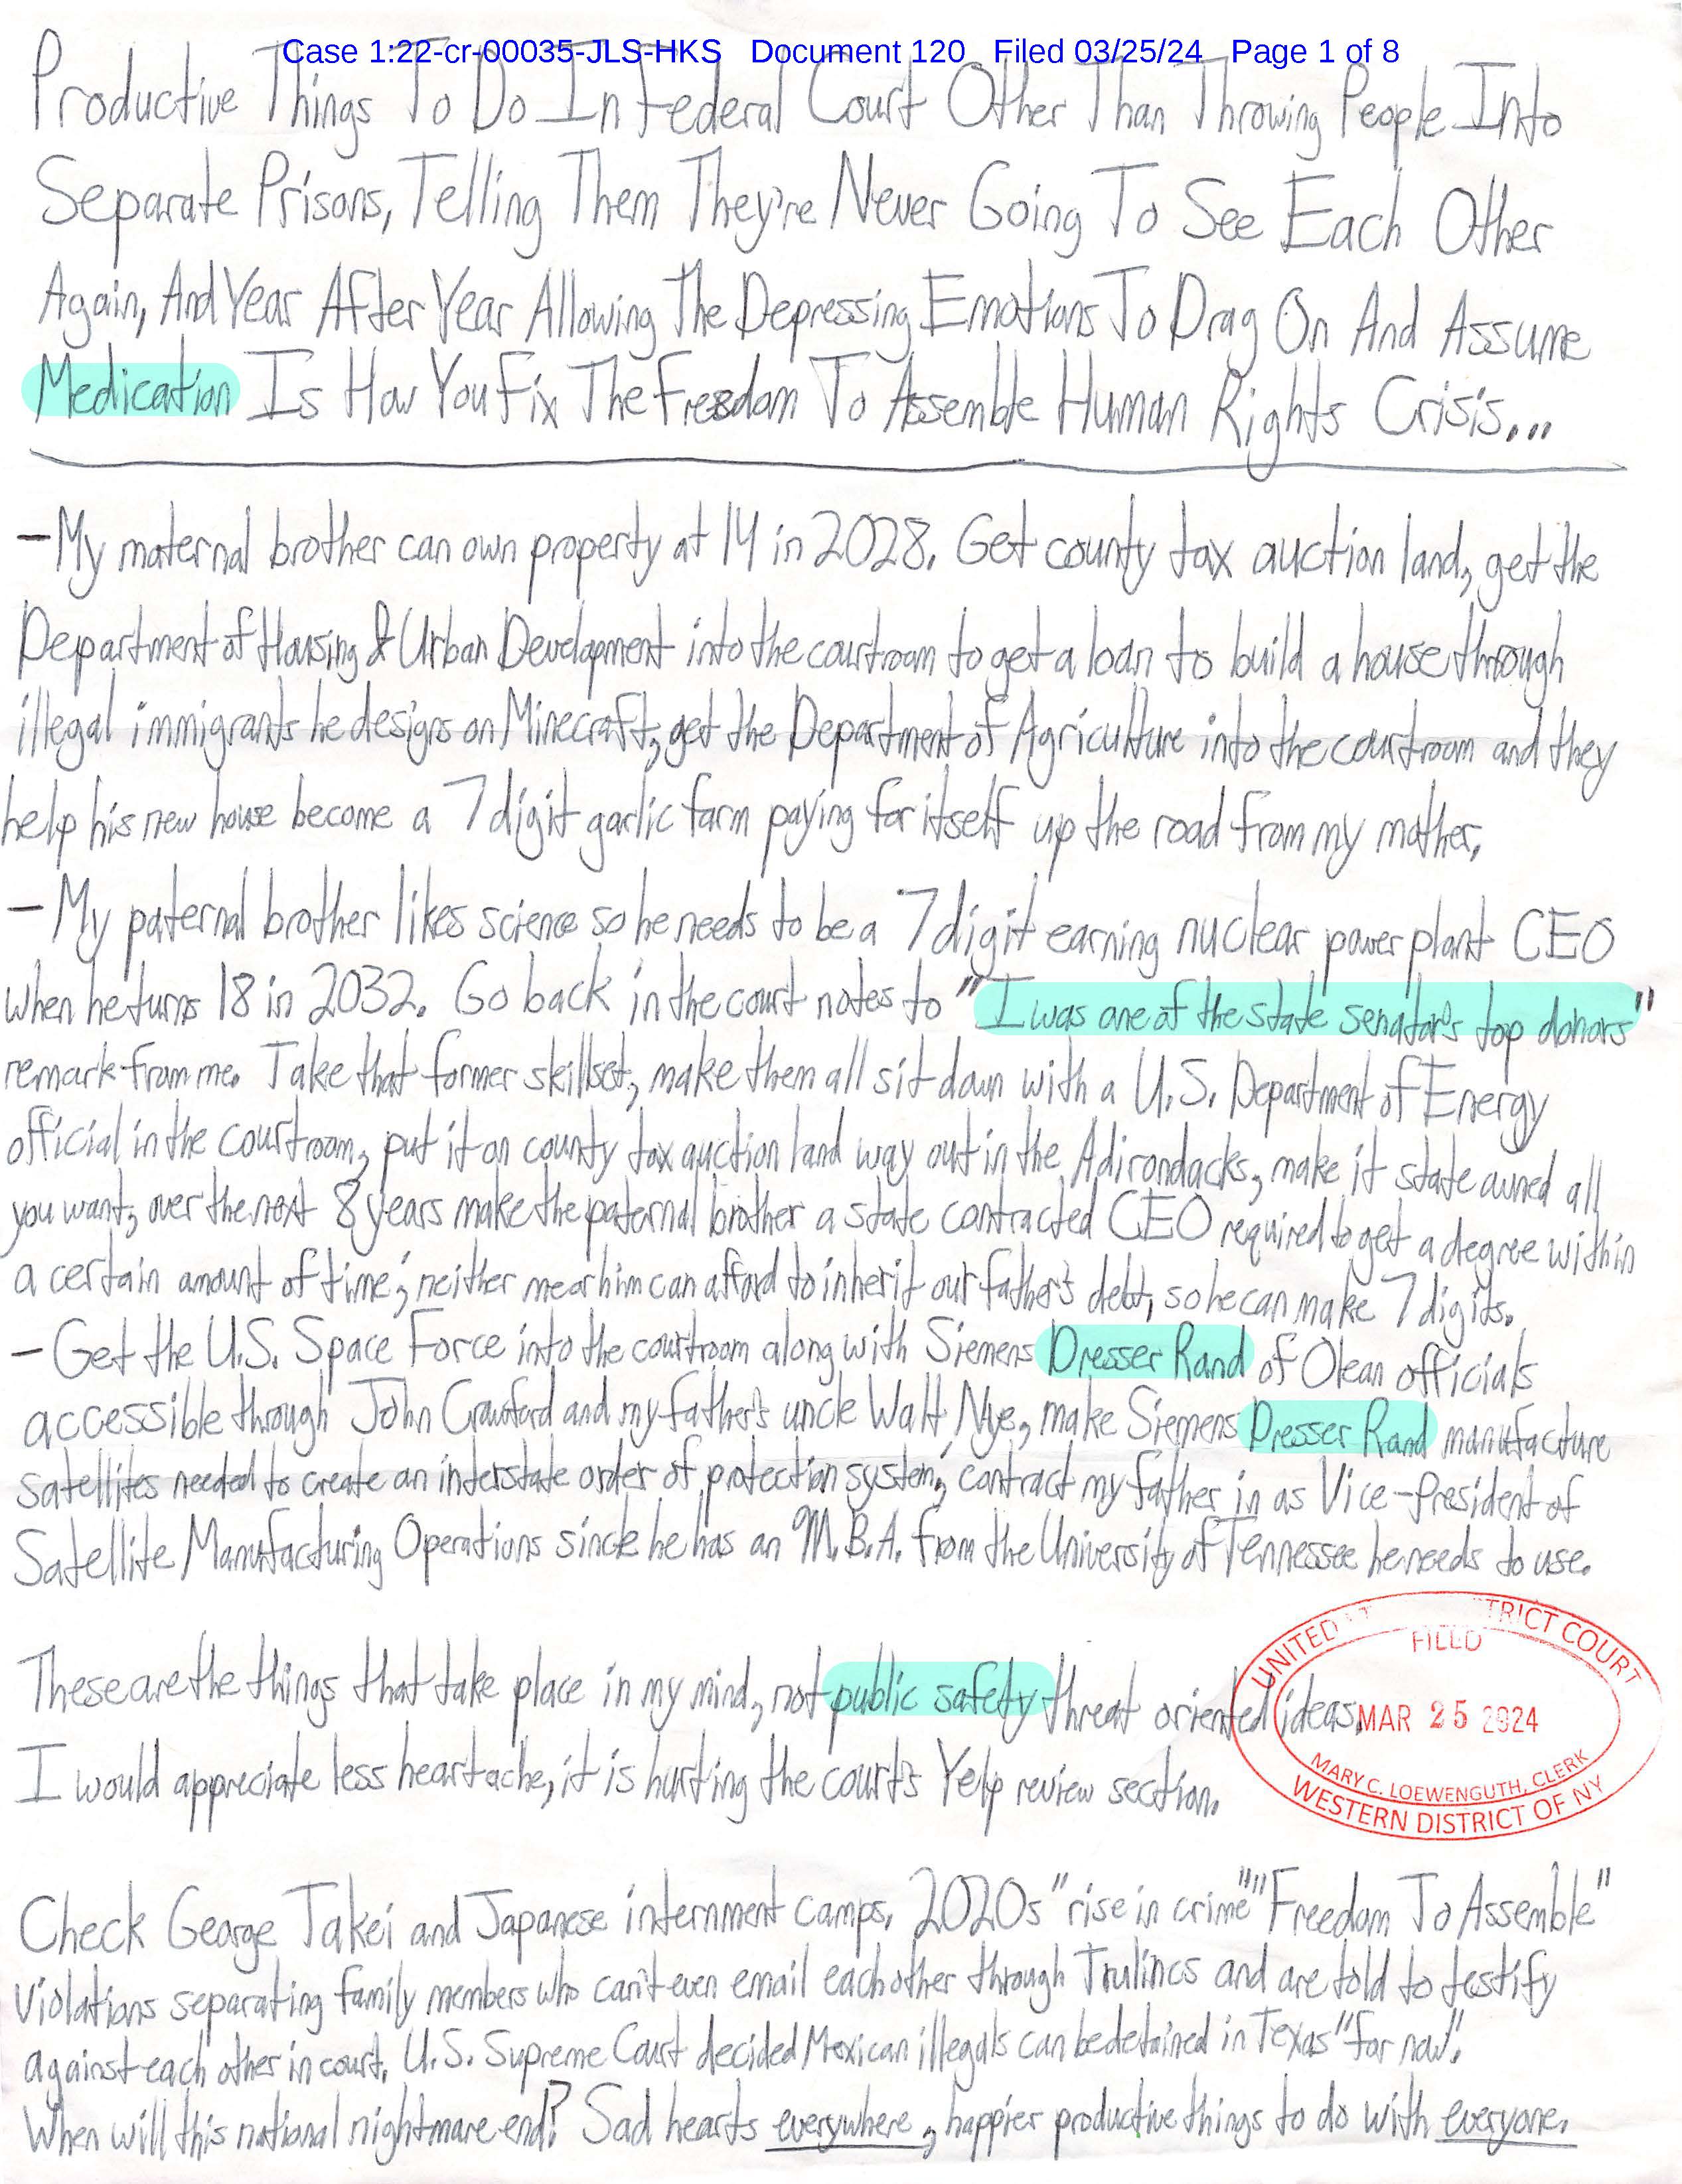 Case 1:22-cr-00035-JLS-HKS Document 120 Filed 03/25/24 Page 1 of 8
Productive Things To Do In Federal Court Other Than Throwing People Into
Separate Prisons, Telling Them They're Never Going To See Each Other
Again, And Year After Year Allowing The Depressing Emotions To Drag On And Assume
Medication Is How You Fix The Freedom To Assemble Human Rights Crisis...
-My maternal brother can own property at 14 in 2028. Get county tax auction land, get the
Department of Housing & Urban Development into the courtroom to get a loan to build a house through
illegal immigrants he designs on Minecraft, get the Department of Agriculture into the courtroom and they
help his new house become a 7 digit garlic farm paying for itself up the road from my mother.
- My paternal brother likes science so he needs to be a 7 digit earning nuclear power plant CEO
when he turns 18 in 2032. Go back in the court notes to "I was one of the state senator's top donors"
remark from me. Take that former skillset, make them all sit down with a U.S. Department of Energy
official in the courtroom, put it on county tax auction land way out in the Adirondacks, make it state owned all
you want, over the next 8 years make the paternal brother a state contracted CEO required to get a degree within
a certain amount of time; neither me or him can afford to inherit our father's debt, so he can make 7 digits.
- Get the U.S. Space Force into the courtroom along with Siemens Dresser Rand of Olean officials
accessible through John Crawford and my father's uncle Walt Nye, make Siemens Dresser Rand manufacture
satellites needed to create an interstate order of protection system; contract my father in as Vice-President of
Satellite Manufacturing Operations since he has an M.B.A. from the University of Tennessee he needs to use.
These are the things that take place in my mind, not public safety threat oriented ideas.
I would appreciate less heartache, it is hurting the court's Yelp review section.
UNITED TRICT COURT
FILED
MAR 25 2024
MARY C. LOEWENGUTH, CLERK
WESTERN DISTRICT OF NY
Check George Takei and Japanese internment camps. 2020s "rise in crime" "Freedom To Assemble"
violations separating family members who can't even email each other through Trulincs and are told to testify
against each other in court. U.S. Supreme Court decided Mexican illegals can be detained in Texas "for now".
When will this national nightmare end? Sad hearts everywhere, happier productive things to do with everyone.